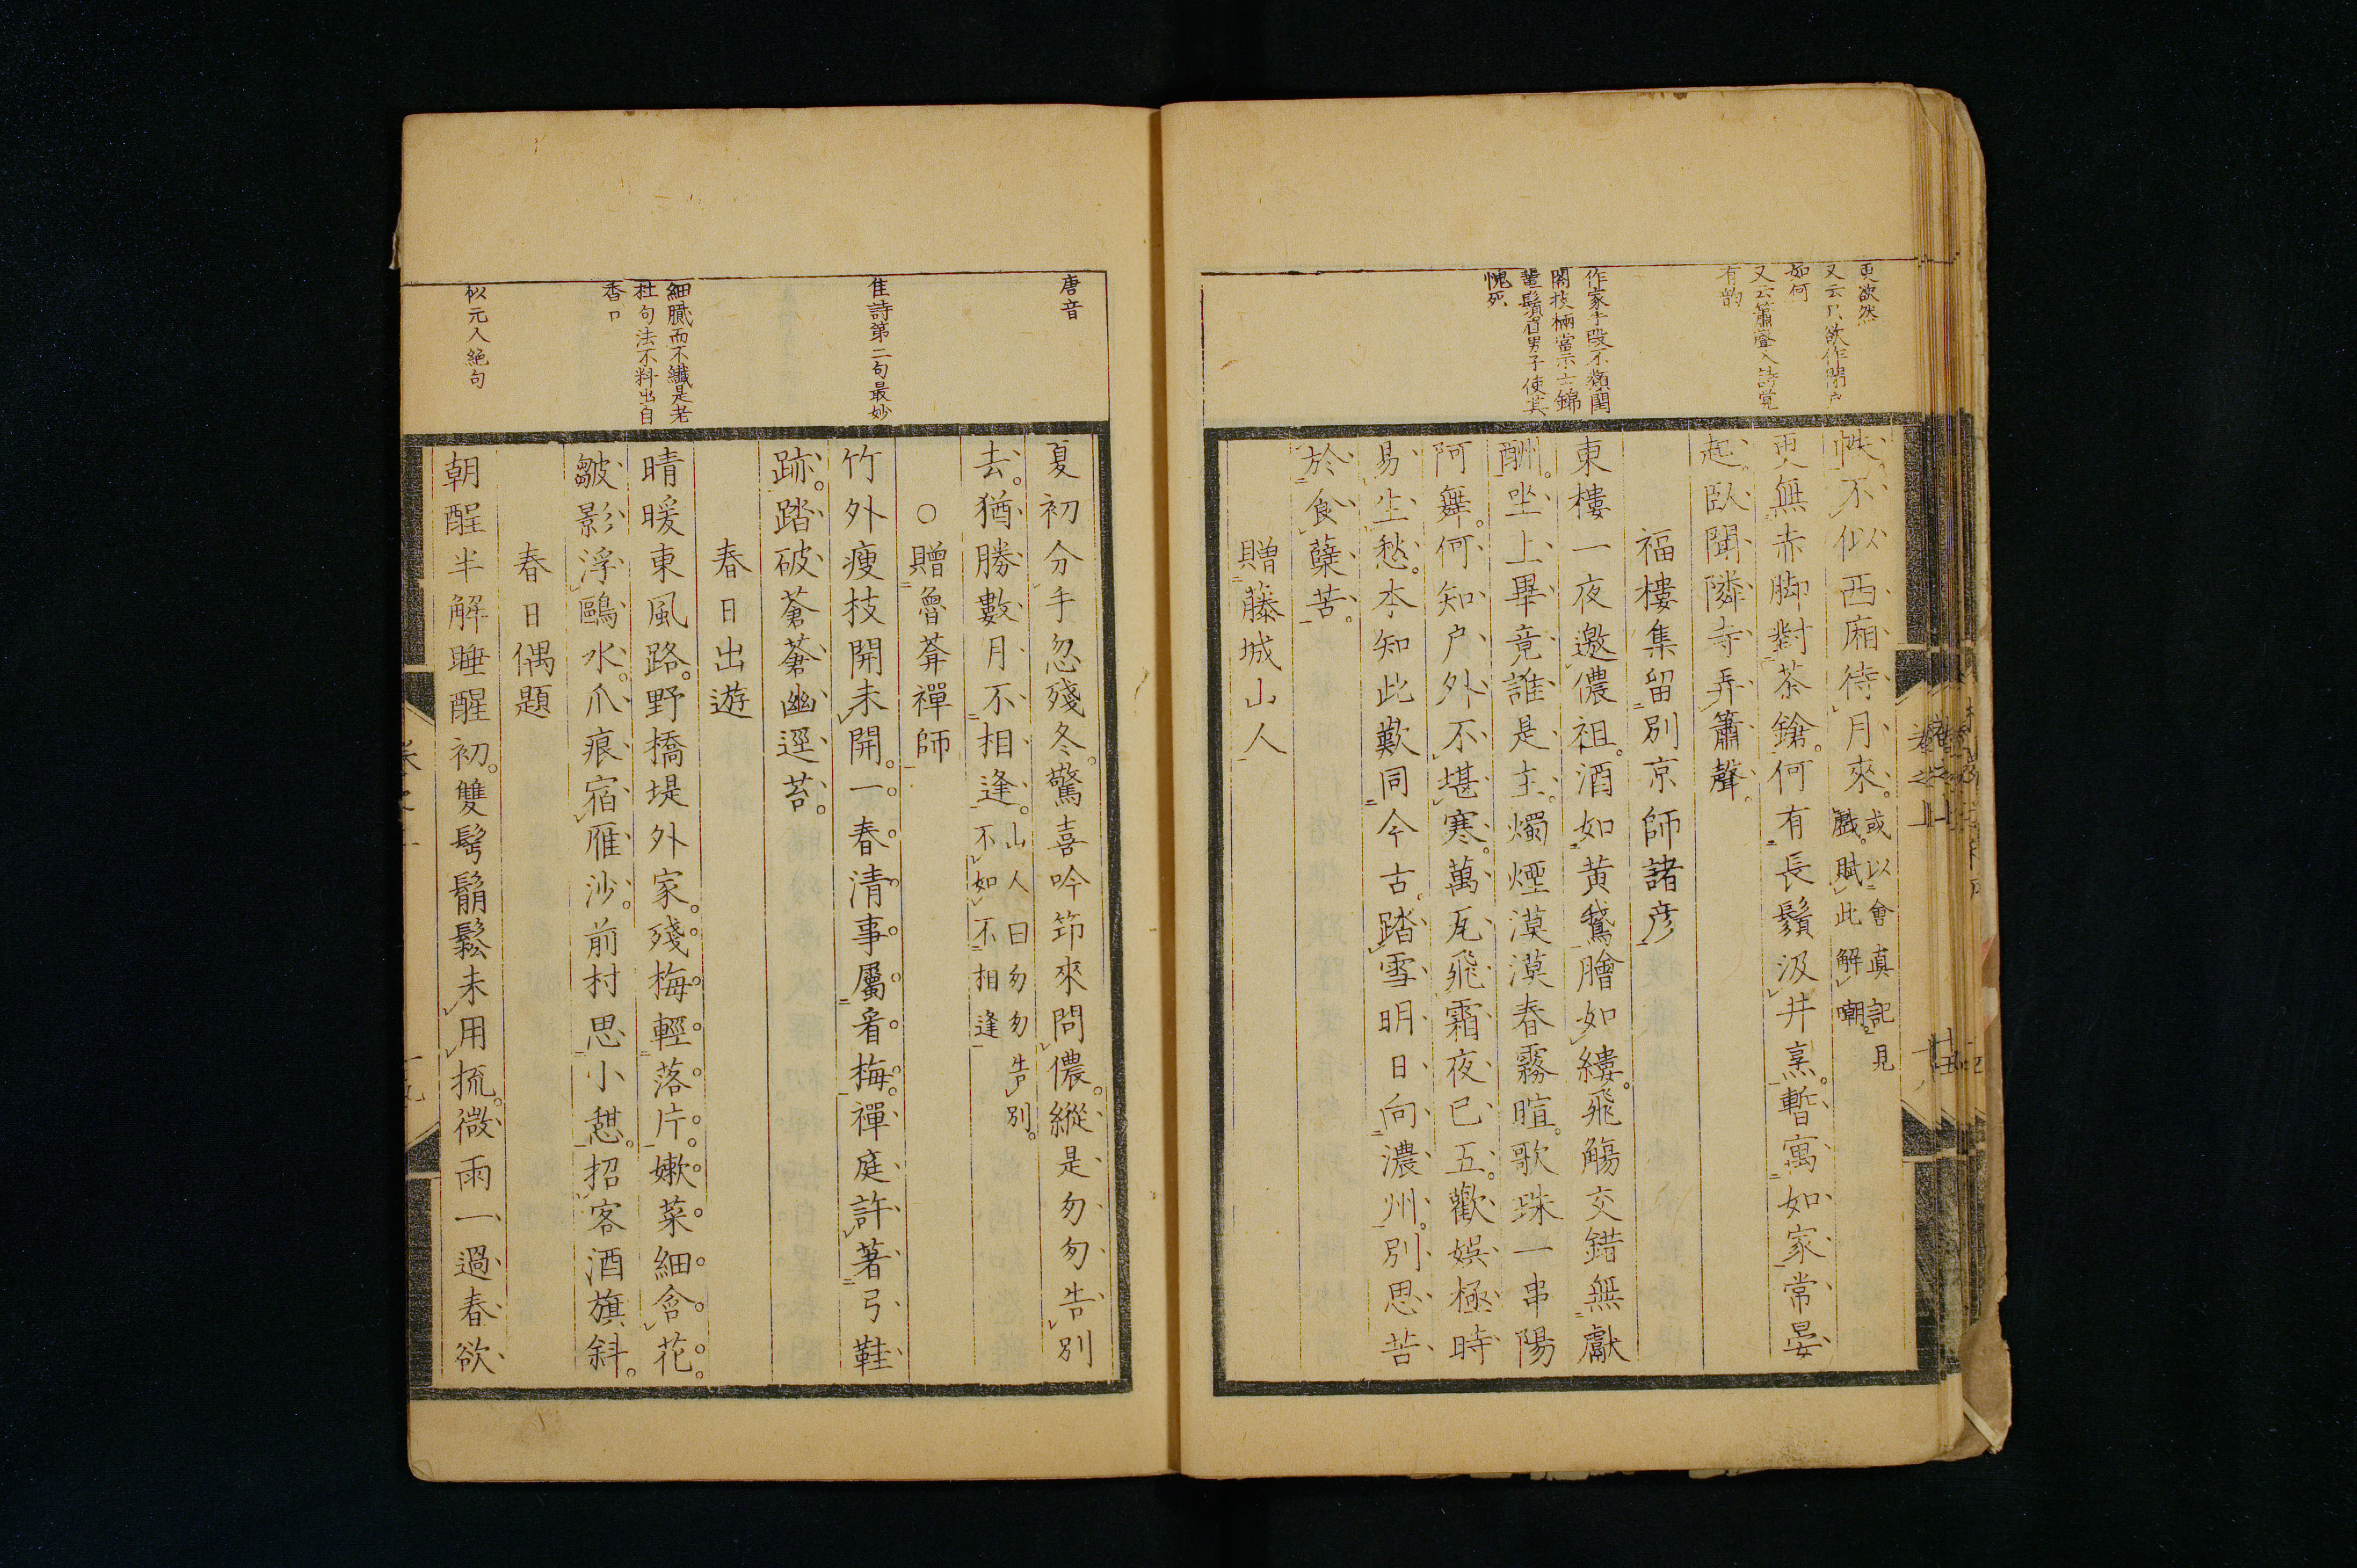 更欲然
又云只欲作閉戶
如何
又云簫聲入詩覚
有韵
作家手段不類閨
閤技倆當示士錦
輩鬚眉男子使其
愧死
帙不似西廂待月來。或以會真記見
戲。賦此解嘲。
更無赤脚對茶鎗。何有長鬚汲井烹。暫寓如家常晏
起。臥聞隣寺弄簫聲。
福樓集留別京師諸彦
東樓一夜邀儂祖。酒如黄鵞膾如縷。飛觴交錯無獻
酬。坐上畢竟誰是主。燭煙漠漠春霧暄。歌珠一串陽
阿舞。何知户外不堪寒。萬瓦飛霜夜已五。歡娯極時
易生愁。本知此歎同今古。踏雪明日向濃州。別思苦
於食蘗苦。
贈藤城山人
唐音
隹詩第二句最妙
細膩而不纖是老
杜句法不料出自
香口
似元人絶句
夏初分手忽殘冬。驚喜吟筇來問儂。縱是匆匆告別
去。猶勝數月不相逢。山人曰匆匆告別。
不如不相逢
○贈魯葊禪師
竹外痩枝開未開。一春清事屬看梅。禪庭許著弓鞋
跡。踏破蒼蒼幽逕苔。
春日出遊
晴暖東風路。野橋堤外家。殘梅輕落片。嫩菜細含花。
皺影浮鷗水。爪痕宿雁沙。前村思小憩。招客酒旗斜。
春日偶題
朝酲半解睡醒初。雙髩鬅鬆未用梳。微雨一過春欲